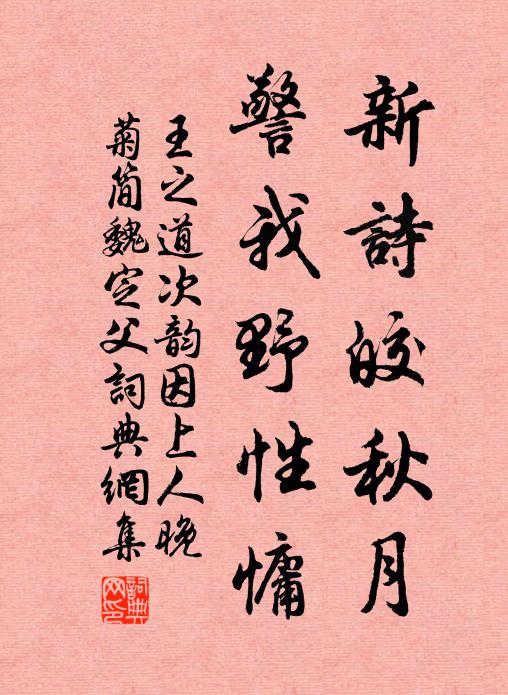 新詩皎秋月
警我野性慵
王之道次韵因上人晚
菊简魏定父詞典網集
詞典網印